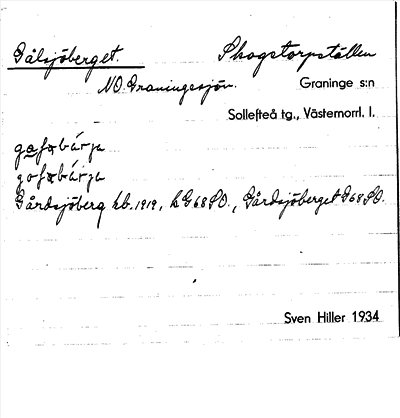 Gålsjöberget. Skogstorpställen
NO. Graningesjön. Graninge s:n
Sollefteå tg., Västernorrl. l.
Gårdsjöberg kb. 1919, k G 68 SO., Gårdsjöberget G 68 SO.
Sven Hiller 1934